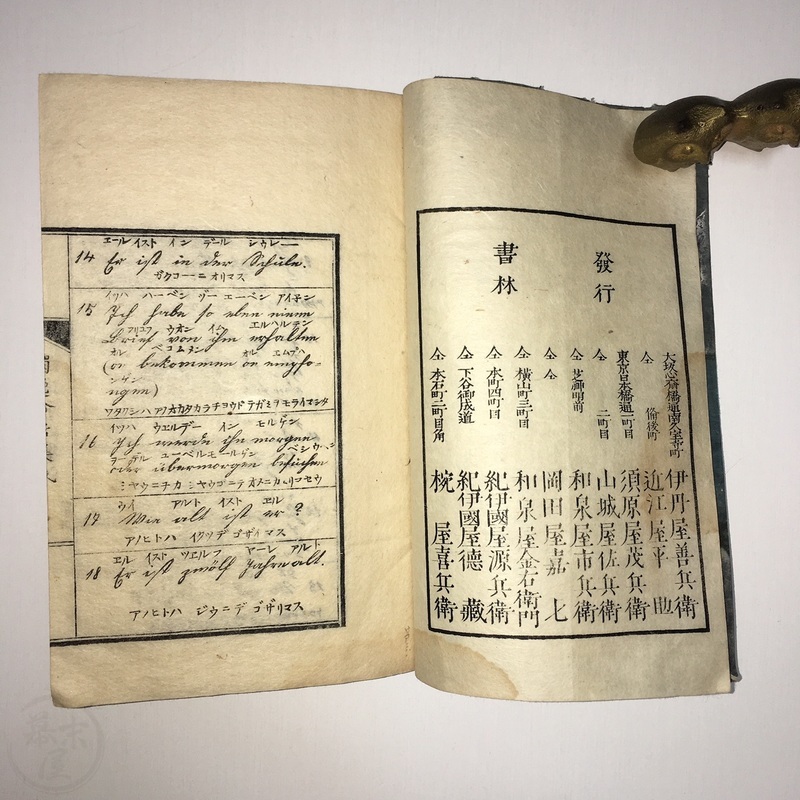 エール イスト イン デール シウレー
14 Er ist in der Schule.
ガクコーニ オリマス
イツハ ハーベン ゾー エーベン アイネン
15 Ich habe so eben einen
フリユフ ウオン イム エルハルテン
Brief von ihm erhalten
(or bekommen or empfan-
ngen)
ワタクシハ アノオカタカラチョウドテガミヲモライマシタ
イツハ ウエルデー イン モルゲン
16 Ich werde ihn morgen
oder übermorgen besuchen
ウイ アルト イスト エル
17 Wie alt ist er?
アノヒトハ イクツデゴザイマス
エル イスト ツエルフ ヤーレ アルト
18 Er ist zwölf Jahre alt.
アノヒトハ ジウニ デ ゴザリマス
發行
書林
大坂心斎橋通南久宝寺町 伊丹屋善兵衛
仝 備後町 近江屋平助
東京日本橋通一町目 須原屋茂兵衛
仝 二町目 山城屋佐兵衛
仝 芝神明前 和泉屋市兵衛
仝 仝 岡田屋嘉七
仝 横山町三町目 和泉屋金右衛門
仝 本町四町目 紀伊國屋源兵衛
仝 下谷御成道 紀伊國屋德藏
仝 本石町二町目角 椀屋喜兵衛